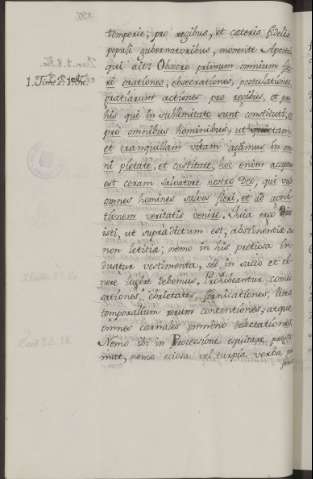 temporis; pro regibus, et cæteris fidelis
populi gubernatoribus, memores Apostoli
qui ait: Obsecro primum omnium fie-
1. Tim. 2.
ri orationes, obsecrationes, postulationes,
gratiarum actiones pro regibus, et pro
his qui in sublimitate sunt constituti, et
pro omnibus hominibus, ut quietam
et tranquillam vitam agamus in om-
ni pietate, et castitate, hoc enim acceptum
est coram salvatore nostro Deo, qui vult
omnes homines salvos fieri, et ad agni-
tionem veritatis venire. Quia ergo
isti, ut supra dictum est, abstinentiæ
non letitiæ, nemo in his pretiosa in-
duatur vestimenta, sed in sacco et ci-
nere lugere debemus, Prohibeantur, comes-
sationes, ebrietates, fornicationes, lites
temporalium rerum contentiones, atque
omnes carnales
Nemo ibi in Processione equitare
mat, nemo ociosa vel turpia verba